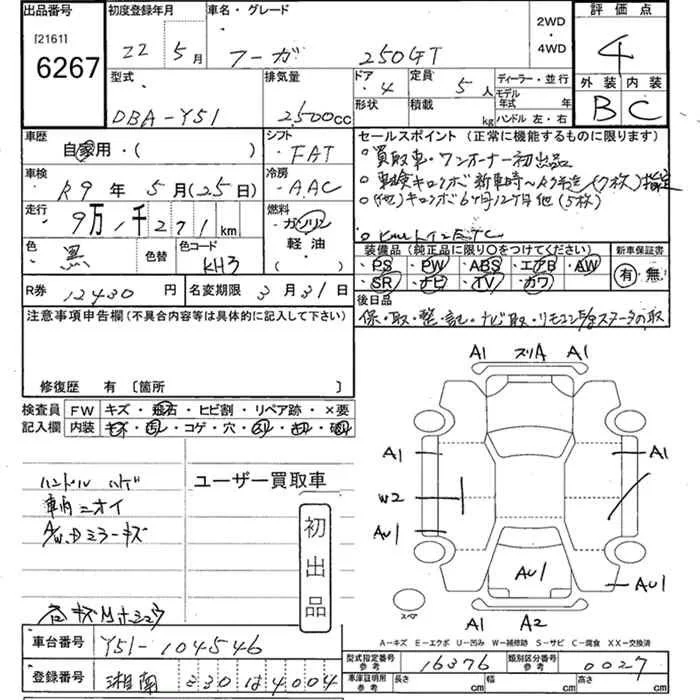 出品番号 初度登録年月 車名・グレード 2WD・4WD 評価点
[2161]
6267 22 5月 フーガ 250GT 4
型式 排気量 ドア 定員 ディーラー・並行 外装 内装
DBA-Y51 2,500cc 4 5人 モデル年式 年 B C
形状 積載 kg ハンドル 左・右
車歴 シフト セールスポイント(正常に機能するものに限ります)
自家用・( ) FAT ○買取車・ワンオーナー初出品
車検 冷房
R9年5月(25日) AAC
走行 燃料
9万1千271km ガソリン
軽油( )
色 色替 色コード 装備品(純正品に限り○をつけてください) 新車保証書
黒 KH3 ・PS ・PW ・ABS ・エアB ・AW 有・無
・SR ・ナビ ・TV ・カワ
R券 名変期限 後日品
12430円 3月31日 保・取・整・記・ナビ取・リモコン
注意事項申告欄(不具合内容等は具体的に記入して下さい)
修復歴 有〔箇所 〕
検査員記入欄 FW キズ・飛石・ヒビ割・リペア跡・×要
内装 キズ・コゲ・穴
ハンドル ハゲ ユーザー買取車
車内ニオイ
ミラーキズ
初出品
A1 スリA A1
A1 A1
W2
AU1
AU1 AU1
スペア
A1 A2
A-キズ E-エクボ U-凹み W-補修跡 S-サビ C-腐食 XX-交換済
車台番号 Y51-104546
登録番号 湘南 330 は 4004
型式指定番号 参考 16376 類別区分番号 参考 0027
車庫証明用 参考 長さ cm 幅 cm 高さ cm